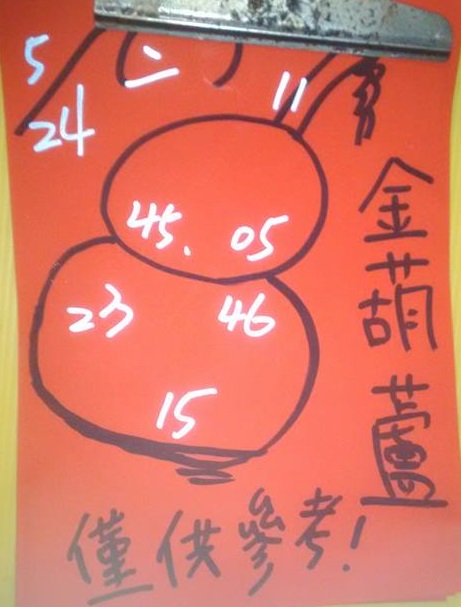 5
24
二
11
45. 05
23 46
15
金葫蘆
僅供參考!